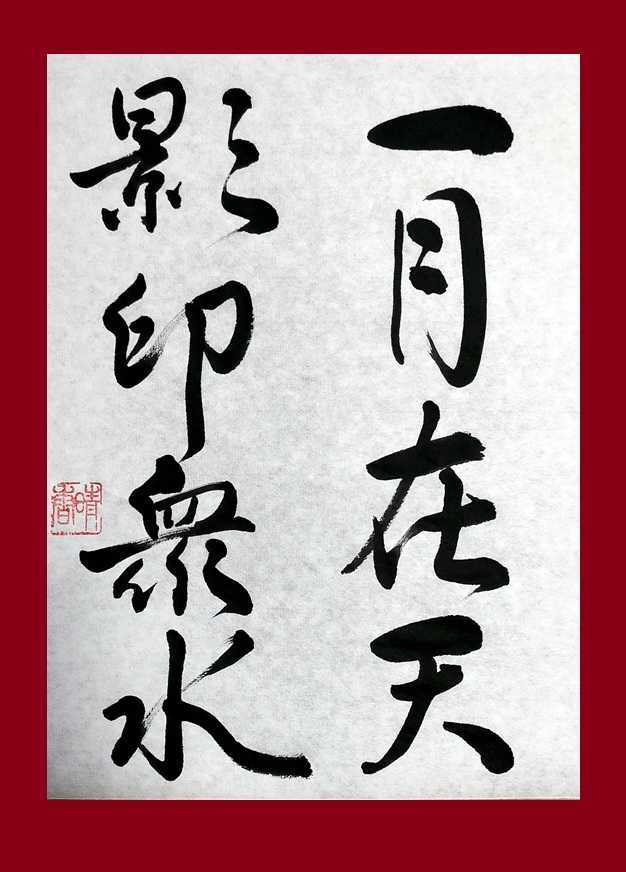 一月在天
影印衆水